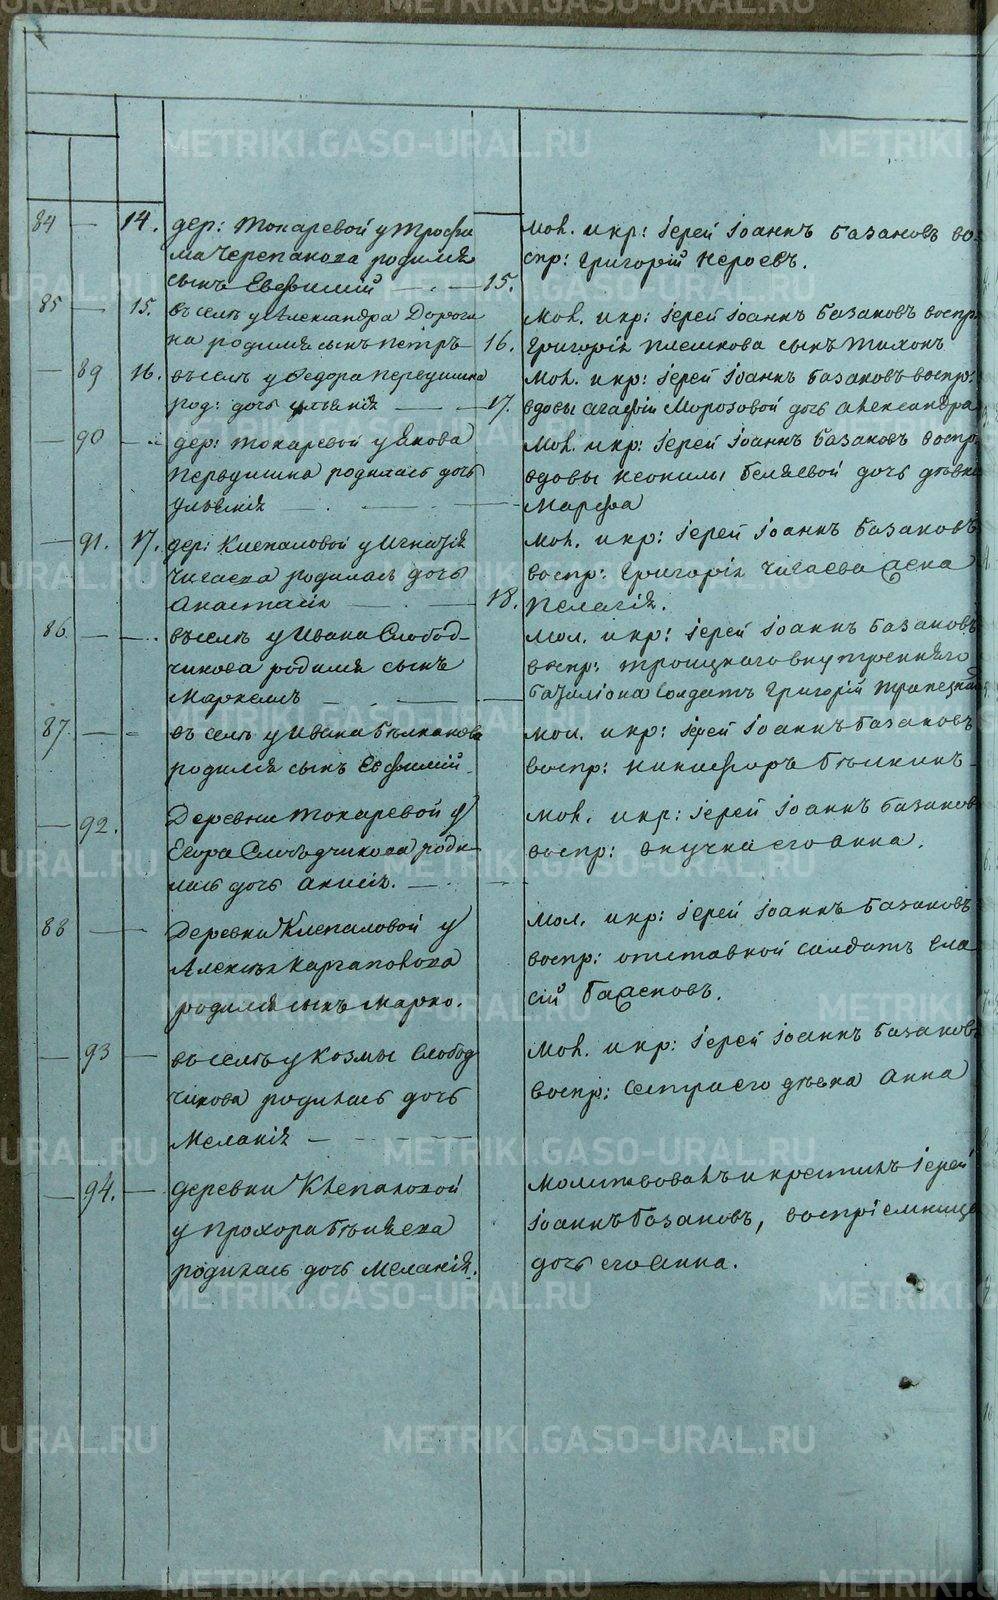 84 — 14. дер: Токаревой у Трофи
ма Черепанова родился
сынъ Евфимий — 15.
мол. и кр: Іерей Іоаннъ Базановъ во
спр: Григорій
85 — 15. въ селѣ у Александра Дороги
на родился сынъ Петръ 16.
мол. и кр: Іерей Іоаннъ Базановъ воспр:
Григорія Плешкова сынъ Тихонъ
— 89 16. въ селѣ у Федора
род: дочь Ульянія — 17.
мол. и кр: Іерей Іоаннъ Базановъ воспр:
вдовы Агафіи Морозовой дочь Александра
— 90 — дер: Токаревой у Якова
родилась дочь
Ульянія —
мол. и кр: Іерей Іоаннъ Базановъ воспр:
вдовы Неонилы Беляевой дочь дѣвка
Марфа
— 91. 17. дер: Клепаловой у Игнатія
Чигаева родилась дочь
Анастасія — 18.
мол. и кр: Іерей Іоаннъ Базановъ
воспр: Григорія Чигаева жена
Пелагія.
86. — — въ селѣ у Ивана Слобод-
чикова родился сынъ
Маркелъ —
мол. и кр: Іерей Іоаннъ Базановъ
воспр: Троицкаго внутренняго
баталіона солдатъ Григорій
87. — — въ селѣ у Ивана
родился сынъ Евфимій.
мол. и кр: Іерей Іоаннъ Базановъ
воспр: Никифоръ
— 92. Деревни Токаревой у
Егора роди-
лась дочь Анисія. —
мол. и кр: Іерей Іоаннъ Базановъ
воспр: внучка его Анна.
88 — Деревни Клепаловой у
Алексѣя Каргаполова
родился сынъ Марко.
мол. и кр: Іерей Іоаннъ Базановъ
воспр: отставной солдатъ Вла
сій
— 93 — въ селѣ у Козмы Слобод
чикова родилась дочь
Меланія —
мол. и кр: Іерей Іоаннъ Базановъ
воспр: сестра его дѣвка Анна
— 94. — деревни Клепаловой
у Прохора Бѣляева
родилась дочь Меланія.
молитвовалъ и крестилъ Іерей
Іоаннъ Базановъ, воспріемница
дочь его Анна.
METRIKI.GASO-URAL.RU